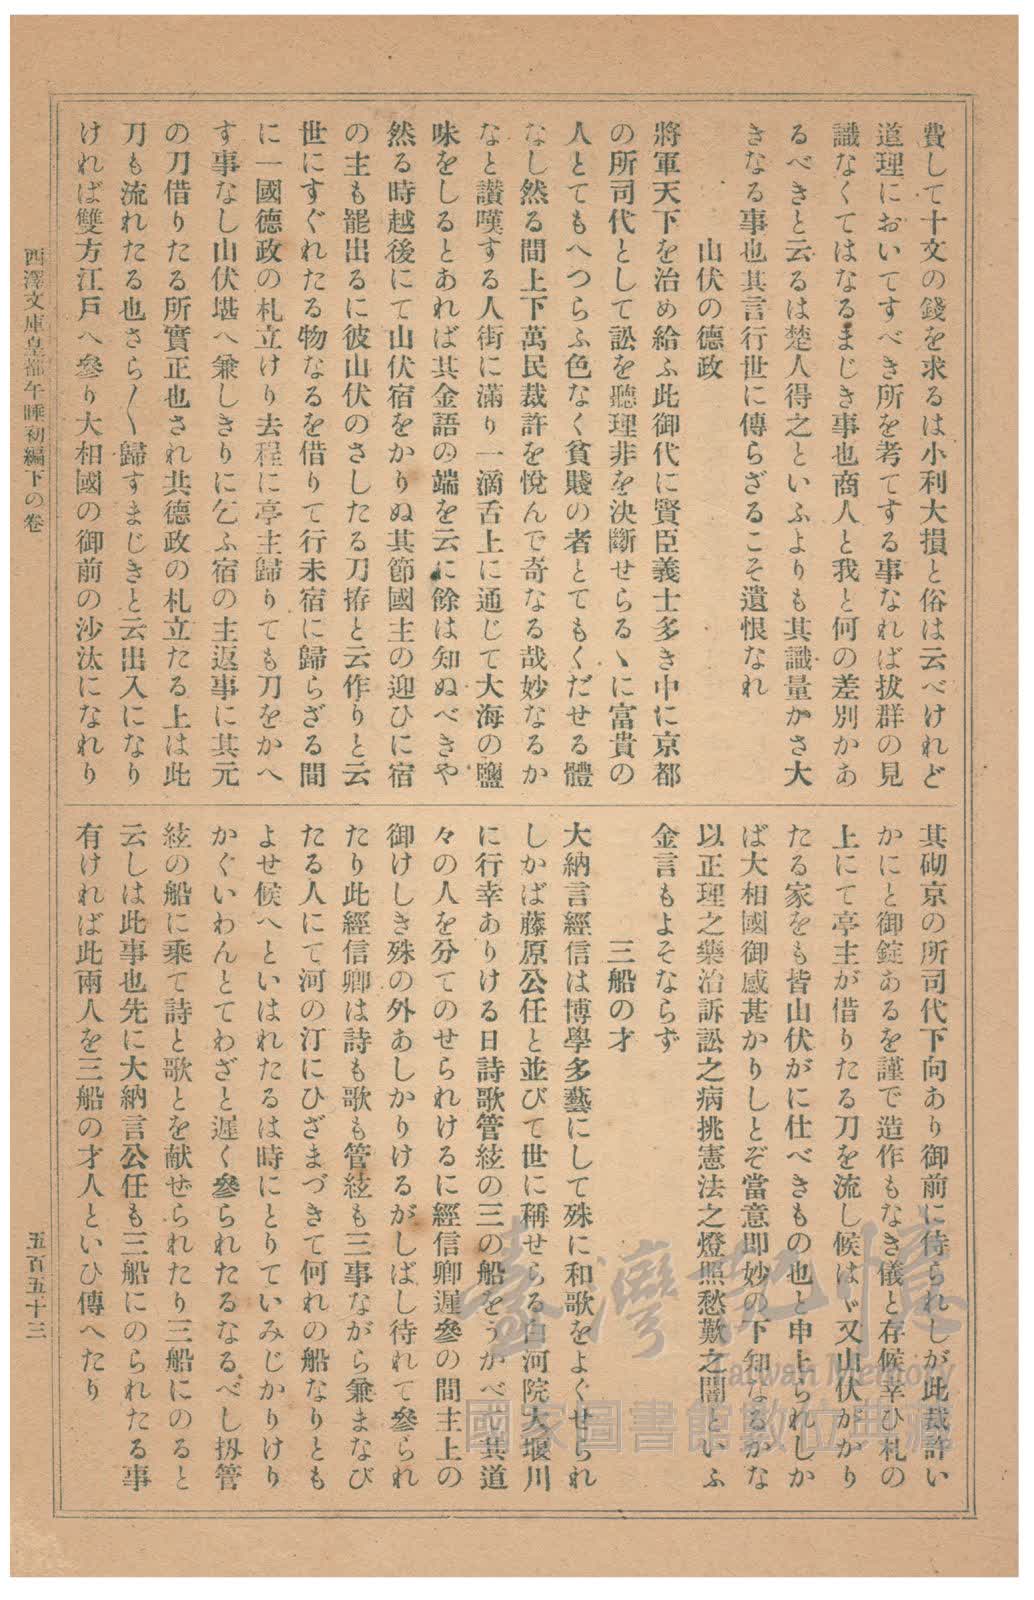 費して十文の錢を求るは小利大損と俗は云べけれど
道理においてすべき所を考てする事なれば拔群の見
識なくてはなるまじき事也商人と我と何の差別かあ
るべきと云るは楚人得之といふよりも其識量かさ大
きなる事也其言行世に傳らざるこそ遺恨なれ
山伏の德政
將軍天下を治め給ふ此御代に賢臣義士多き中に京都
の所司代として訟を聽理非を決斷せらるヽに富貴の
人とてもへつらふ色なく貧賤の者とてもくだせる體
なし然る間上下萬民裁許を悅んで奇なる哉妙なるか
なと讃嘆する人街に滿り一滴舌上に通じて大海の鹽
味をしるとあれば其金語の端を云に餘は知ぬべきや
然る時越後にて山伏宿をかりぬ其節國主の迎ひに宿
の主も罷出るに彼山伏のさしたる刀拵と云作りと云
世にすぐれたる物なるを借りて行未宿に歸らざる間
に一國德政の札立けり去程に亭主歸りても刀をかへ
す事なし山伏堪へ兼しきりに乞ふ宿の主返事に其元
の刀借りたる所實正也され共德政の札立たる上は此
刀も流れたる也さら〱歸すまじきと云出入になり
ければ雙方江戶へ參り大相國の御前の沙汰になれり
其砌京の所司代下向あり御前に侍られしが此裁許い
かにと御錠あるを謹で造作もなき儀と存候幸ひ札の
上にて亭主が借りたる刀を流し候はヾ又山伏がかり
たる家をも皆山伏がに仕べきもの也と申上られしか
ば大相國御感甚かりしとぞ當意即妙の下知なるかな
以正理之藥治訴訟之病挑憲法之燈照愁歎之闇といふ
金言もよそならず
三船の才
大納言經信は博學多藝にして殊に和歌をよくせられ
しかば藤原公任と並びて世に稱せらる白河院大堰川
に行幸ありける日詩歌管絃の三の船をうかべ其道
々の人を分てのせられけるに經信卿遲參の間主上の
御けしき殊の外あしかりけるがしばし待れて參られ
たり此經信卿は詩も歌も管絃も三事ながら兼まなび
たる人にて河の汀にひざまづきて何れの船なりとも
よせ候へといはれたるは時にとりていみじかりけり
かぐいわんとてわざと遲く參られたるなるべし扨管
絃の船に乘て詩と歌とを献せられたり三船にのると
云しは此事也先に大納言公任も三船にのられたる事
有ければ此兩人を三船の才人といひ傳へたり
西澤文庫皇都午睡初編下の卷
五百五十三
臺灣記憶
Taiwan Memory
國家圖書館數位典藏